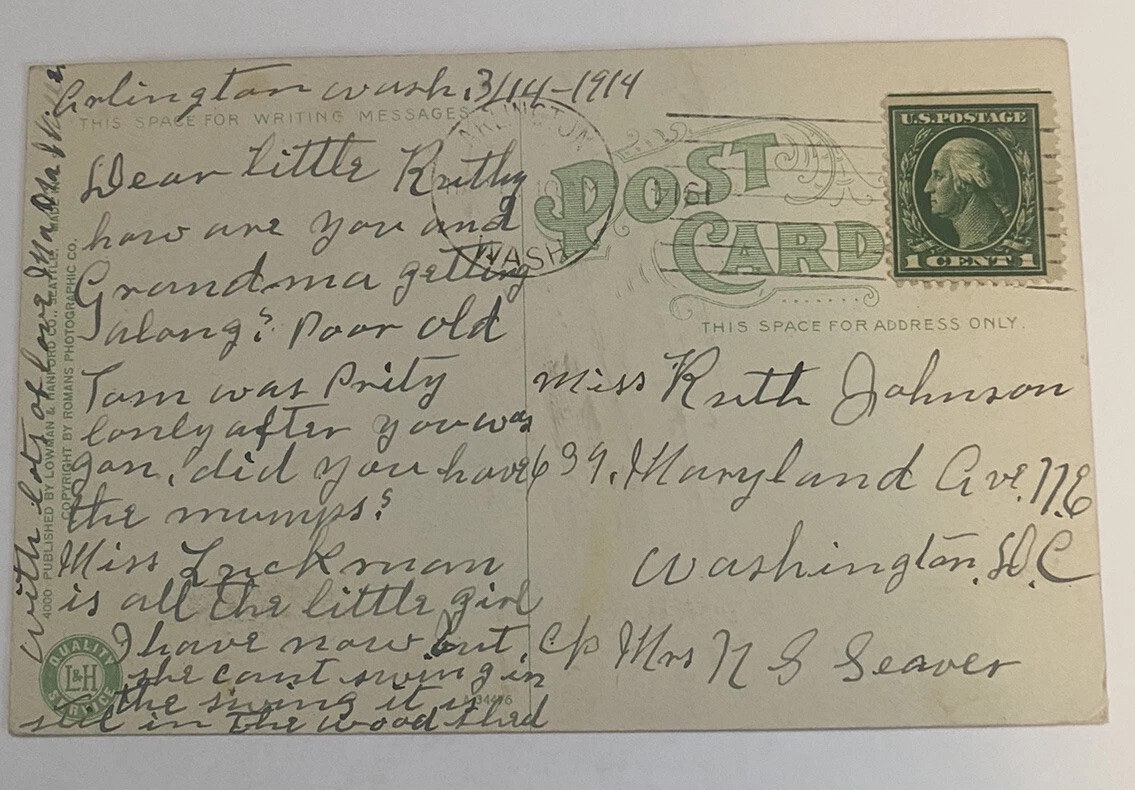 Arlington wash. 3/14-1914
THIS SPACE FOR WRITING MESSAGES
Dear little Ruthy
how are you and
Grandma getting
along? Poor old
Tom was Prity
lonly after you was
gon. did you have
the mumps?
Miss Luckman
is all the little girl
I have now but
she cant swing in
the swing it is
still in the wood shed
with lots of love
4000 PUBLISHED BY LOWMAN & HANFORD CO., SEATTLE. MADE IN
COPYRIGHT BY ROMANS PHOTOGRAPHIC CO.
QUALITY
L&H
SERVICE
ARLINGTON
WASH.
POST
CARD
U.S. POSTAGE
1 CENT 1
THIS SPACE FOR ADDRESS ONLY.
Miss Ruth Johnson
639. Maryland Ave. N.E
Washington. D.C
C/o Mrs N S Seaver